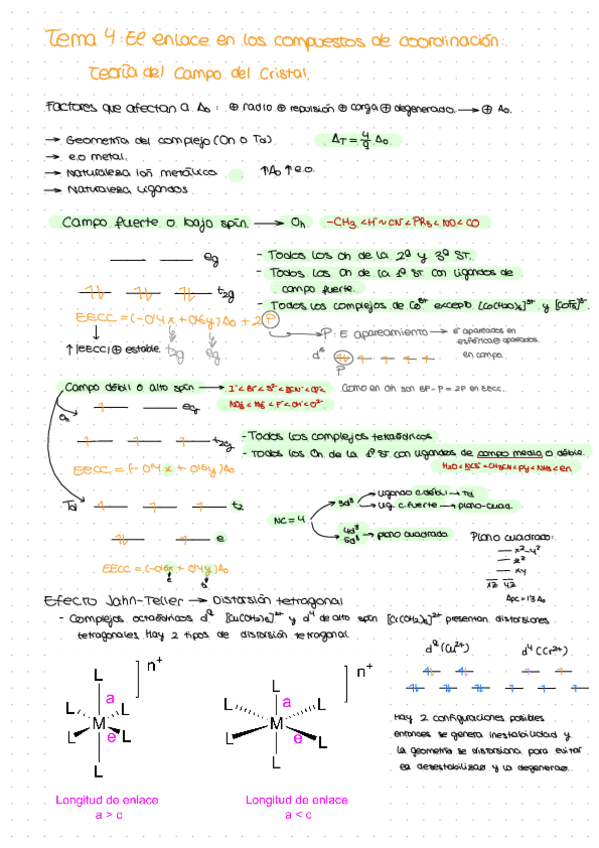 Tema 4: El enlace en los compuestos de coordinación:
Teoría del Campo del Cristal.
Factores que afectan a Δo: ⊕ radio ⊕ repulsión ⊕ carga ⊕ degenerado → ⊕ Δo.
→ Geometría del complejo (Oh o Td) ΔT = 4/9 Δo
→ e.o metal.
→ Naturaleza ión metálico ↑Δo ↑e.o.
→ Naturaleza ligandos
Campo fuerte o bajo spin → Oh -CH3 < H- ~ CN- < PR3 < NO < CO
eg
- Todos los Oh de la 2ª y 3ª ST.
- Todos los Oh de la 1ª ST con ligandos de
campo fuerte.
t2g
- Todos los complejos de Co3+ excepto
EECC = (-0'4x + 0'6y) Δo + 2P
↑|EECC| ⊕ estable. t2g eg
P: E apareamiento → e- apareados en
d6 P en campo.
Como en Oh son 3P - P = 2P en EECC.
Campo débil o alto spin → I- < Br- < S2- < SCN- < Cl-
NO3- < F- < OH- < O2-
Oh eg
t2g
- Todos los complejos tetraédricos
- Todos los Oh de la 1ª ST con ligandos de campo medio o débil.
H2O < NCS- < CH3CN < py < NH3 < en
EECC = (-0'4x + 0'6y) Δo
Td t2
e
NC = 4
3d8 ligando c. débil → Td
lig. c. fuerte → plano-cuad.
4d8
5d8 → plano cuadrada
Plano cuadrado:
x2-y2
z2
xy
xz yz
Δpc = 1'3 Δo
EECC = (-0'6x + 0'4y) Δo
Efecto Jahn-Teller → Distorsión tetragonal
- Complejos octaédricos d9 [Cu(OH2)6]2+ y d4 de alto spin [Cr(OH2)6]2+ presentan distorsiones
tetragonales. Hay 2 tipos de distorsión tetragonal.
d9 (Cu2+) d4 (Cr2+)
n+
L
a
L L
M
L e L
L
n+
L
a
L L
M
L e L
L
Hay 2 configuraciones posibles
entonces se genera inestabilidad y
la geometría se distorsiona para evitar
Longitud de enlace
a > c
Longitud de enlace
a < c